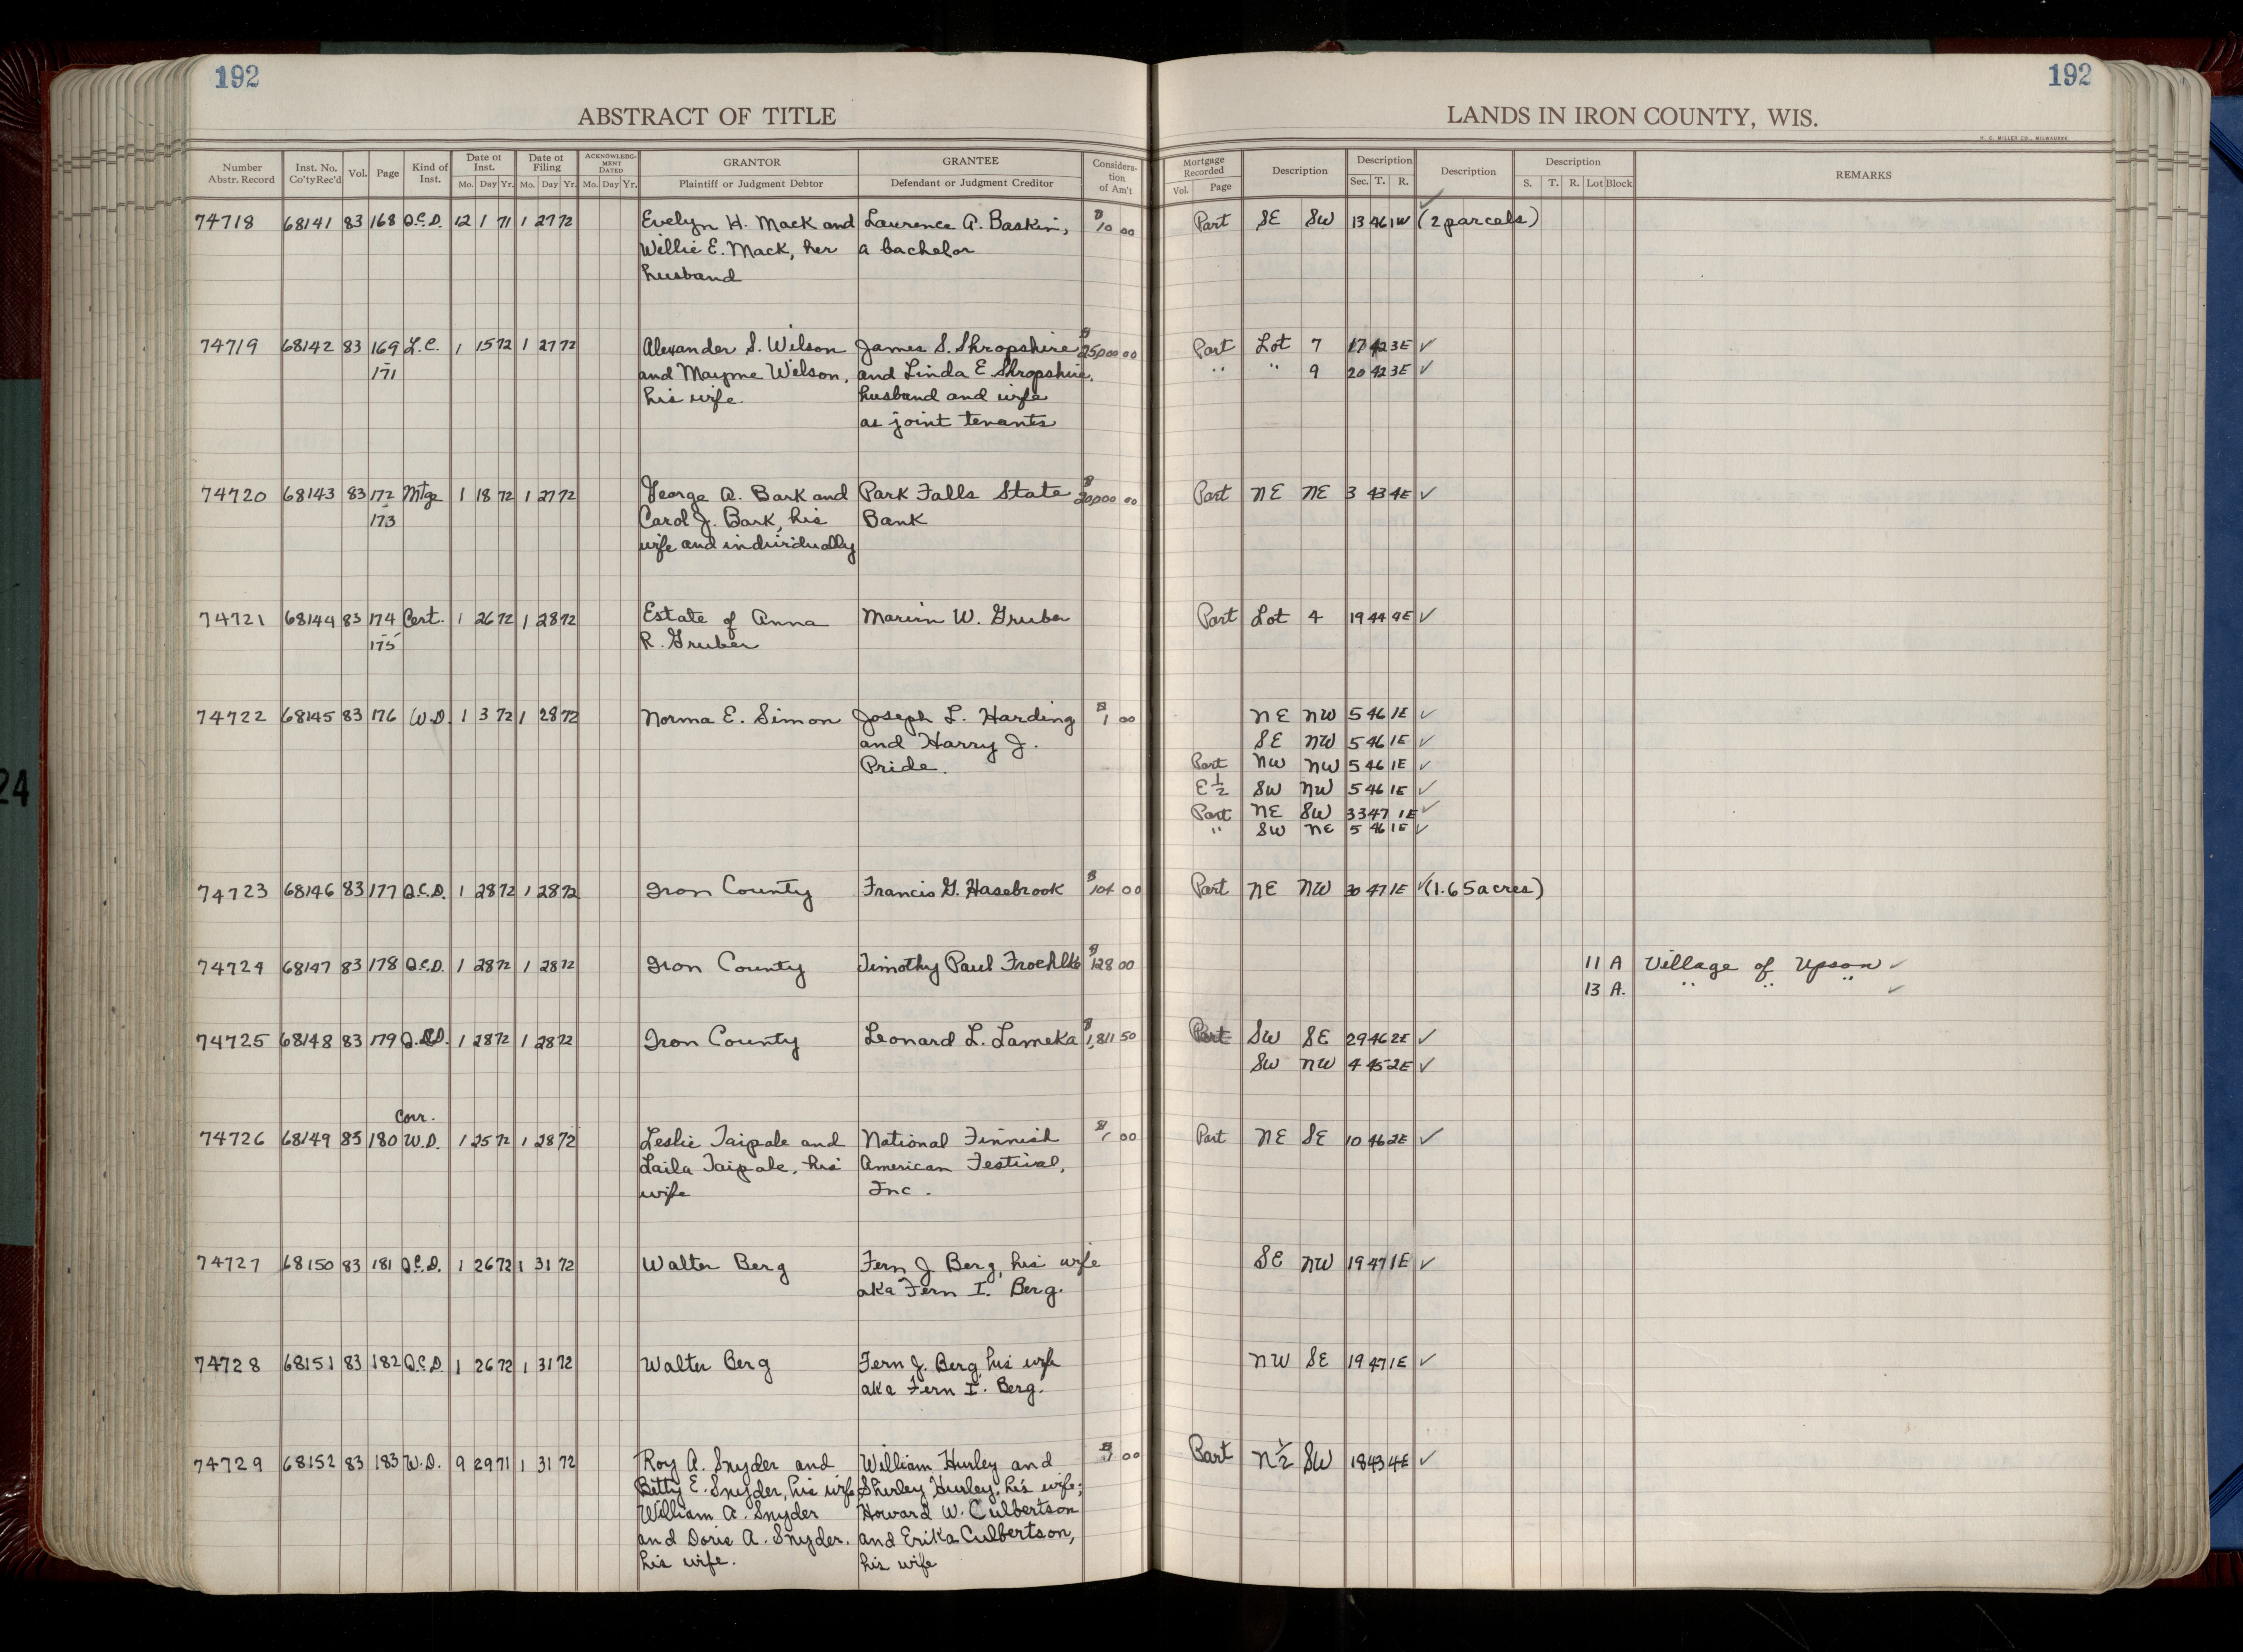 192
192
ABSTRACT OF TITLE
LANDS IN IRON COUNTY, WIS.
H. C. MILLER CO., MILWAUKEE
Number Abstr. Record | Inst. No. Co'ty Rec'd | Vol. | Page | Kind of Inst. | Date of Inst. Mo. Day Yr. | Date of Filing Mo. Day Yr. | ACKNOWLEDGMENT DATED Mo. Day Yr. | GRANTOR Plaintiff or Judgment Debtor | GRANTEE Defendant or Judgment Creditor | Consideration of Am't | Mortgage Recorded Vol. Page | Description | Description Sec. T. R. | Description | Description S. T. R. Lot Block | REMARKS
74718 68141 83 168 Q.C.D. 12 1 71 1 27 72 Evelyn H. Mack and Lawrence A. Baskin, $10 00 Part SE SW 13 46 1W (2 parcels)
Willie E. Mack, her a bachelor
husband
74719 68142 83 169 L.C. 1 15 72 1 27 72 Alexander S. Wilson James S. Shropshire $25,000 00 Part Lot 7 17 42 3E ✓
-171 and Mayme Wilson, and Linda E Shropshire, " " 9 20 42 3E ✓
his wife. husband and wife
as joint tenants
74720 68143 83 172 Mtge 1 18 72 1 27 72 George A. Bark and Park Falls State $20,000 00 Part NE NE 3 43 4E ✓
-173 Carol J. Bark, his Bank
wife and individually
74721 68144 83 174 Cert. 1 26 72 1 28 72 Estate of Anna Marvin W. Gruber Part Lot 4 19 44 4E ✓
-175 R. Gruber
74722 68145 83 176 W.D. 1 3 72 1 28 72 Norma E. Simon Joseph L. Harding $1 00 NE NW 5 46 1E ✓
and Harry J. SE NW 5 46 1E ✓
Pride. Part NW NW 5 46 1E ✓
E 1/2 SW NW 5 46 1E ✓
Part NE SW 33 47 1E ✓
" SW NE 5 46 1E ✓
74723 68146 83 177 Q.C.D. 1 28 72 1 28 72 Iron County Francis G. Hasebrook $104 00 Part NE NW 30 47 1E ✓ (1.65 acres)
74724 68147 83 178 Q.C.D. 1 28 72 1 28 72 Iron County Timothy Paul Froehlke $128 00 11 A Village of Upson ✓
13 A. " " " ✓
74725 68148 83 179 Q.C.D. 1 28 72 1 28 72 Iron County Leonard L. Lameka $1,811 50 Part SW SE 29 46 2E ✓
SW NW 4 45 2E ✓
Corr.
74726 68149 83 180 W.D. 1 25 72 1 28 72 Leslie Taipale and National Finnish $1 00 Part NE SE 10 46 2E ✓
Laila Taipale, his American Festival,
wife Inc.
74727 68150 83 181 Q.C.D. 1 26 72 1 31 72 Walter Berg Fern J. Berg, his wife SE NW 19 47 1E ✓
aka Fern I. Berg.
74728 68151 83 182 Q.C.D. 1 26 72 1 31 72 Walter Berg Fern J. Berg, his wife NW SE 19 47 1E ✓
aka Fern I. Berg.
74729 68152 83 183 W.D. 9 29 71 1 31 72 Roy A. Snyder and William Hurley and $1 00 Part N 1/2 SW 18 43 4E ✓
Betty E. Snyder, his wife Shirley Hurley, his wife;
William A. Snyder Howard W. Culbertson
and Doris A. Snyder, and Erika Culbertson,
his wife. his wife
24